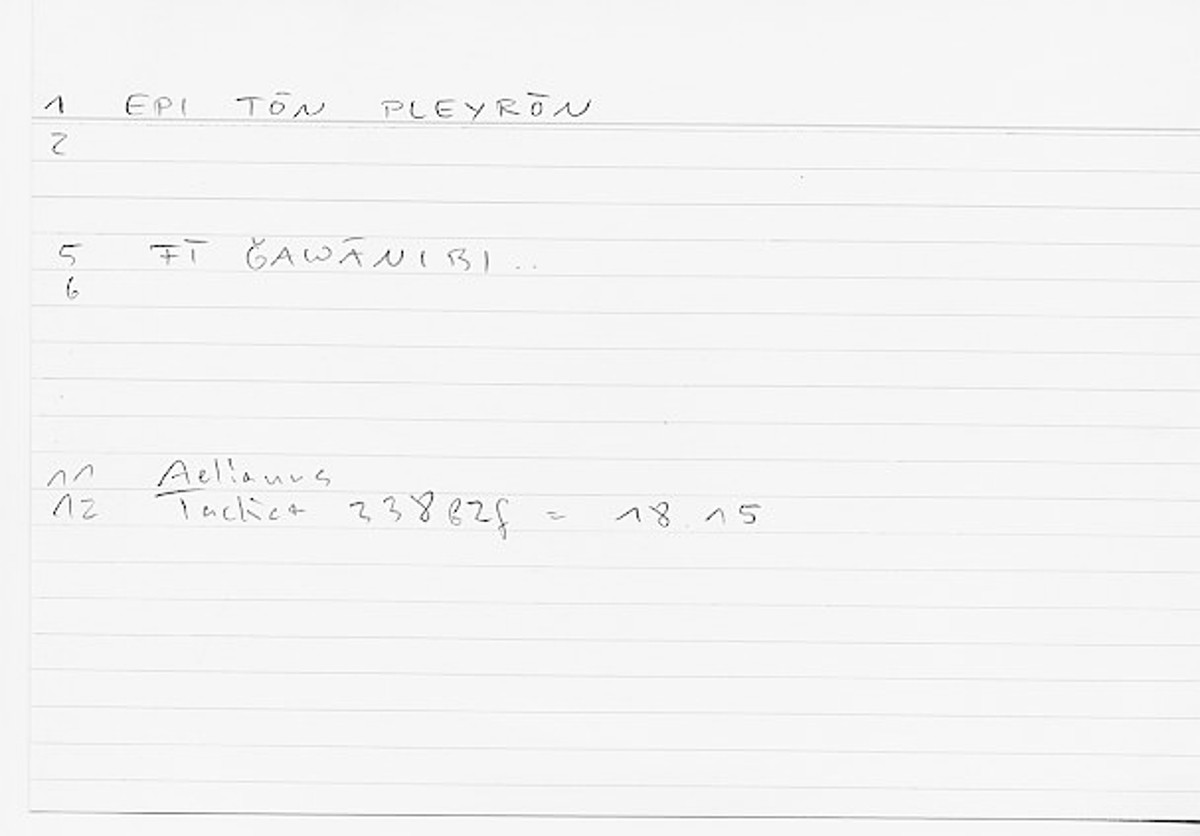 1 EPI TŌN PLEYRŌN
2
5 FĪ ǦAWĀNIBI ..
6
11 Aelianus
12 Tactica 338 B2f = 18.15